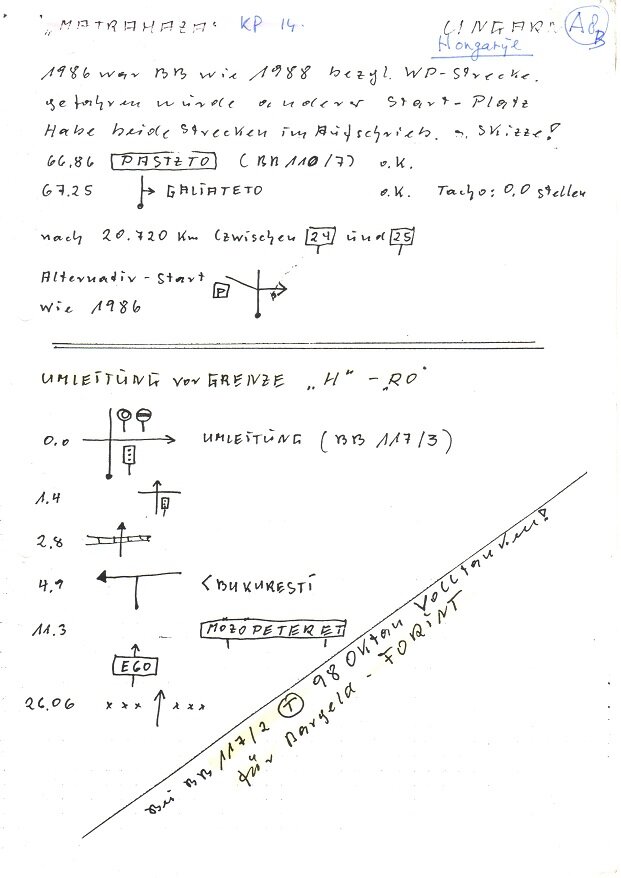 „MATRAHAZA" KP 14. UNGARN A8B
Hongarije
1986 war BB wie 1988 bezgl. WP-Strecke.
gefahren wurde anderer Start-Platz
Habe beide Strecken im Aufschrieb. Skizze!
66.86 PASTZTO (BB 110/7) o.K.
67.25 GALIATETO o.K. Tacho: 0,0 stellen
nach 20.720 Km (zwischen 24 und 25
Alternativ-Start P
wie 1986
UMLEITUNG vor GRENZE „H" - „RO"
0.0 UMLEITUNG (BB 117/3)
1.4
2.8
4.9 < BUKURESTI
11.3 MÖZÖPETERET
E60
26.06 x x x x x x
Bei BB 117/2 T 98 Oktan Volltanken!
für Bargeld - FORINT